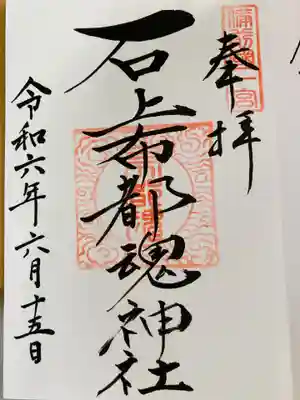 奉拝
備前国一宮
石上布都魂神社
令和六年六月十五日